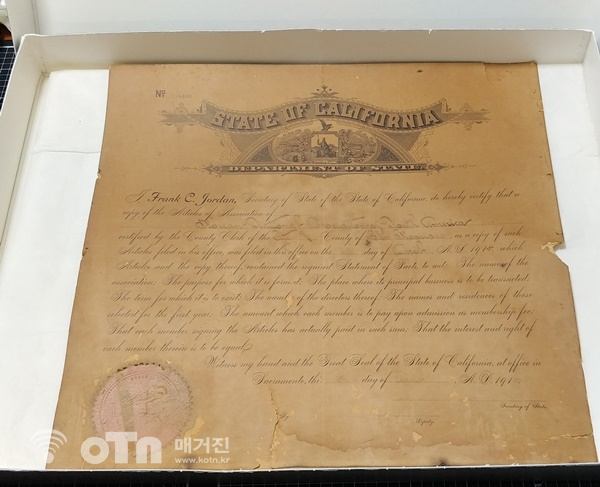 No
STATE OF CALIFORNIA
DEPARTMENT OF STATE
I, Frank C. Jordan, Secretary of State of the State of California, do hereby certify that a
copy of the Articles of Association of
certified by the County Clerk of the County of as a copy of such
Articles filed in his office, was filed in this office on the day of A.D. 191 which
Articles and the copy thereof contained the required Statement of Facts to wit: The name of the
association: The purpose for which it is formed: The place where its principal business is to be transacted:
The term for which it is to exist: The names of the directors thereof: The names and residences of those
selected for the first year: The amount which each member is to pay upon admission as membership fee:
That each member signing the Articles has actually paid in such sum: That the interest and right of
each member therein is to be equal.
Witness my hand and the Great Seal of the State of California, at office in
Sacramento, the day of A.D. 191
Secretary of State
Deputy
OTN 매거진
www.kotn.kr